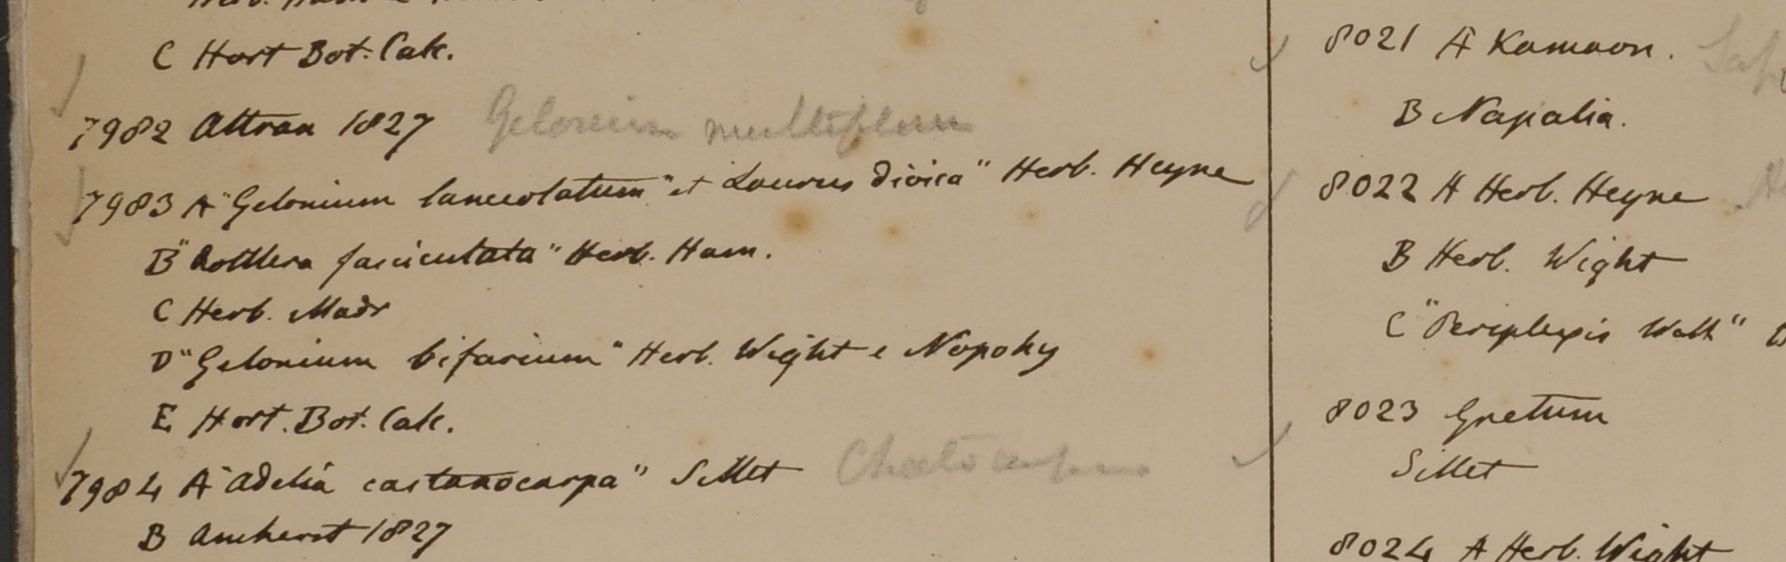 C Hort Bot. Calc.
7982 Attran 1827 Gelonium multiflorum
7983 A "Gelonium lanceolatum" et Laurus dioica" Herb. Heyne
B "Rottlera fasciculata" Herb. Ham.
C Herb. Madr
D "Gelonium bifarium" Herb. Wight e Nopoky
E Hort. Bot. Calc.
7984 A "Adelia castanocarpa" Sillet
B Amherst 1827
8021 A Kamaon.
B Napalia.
8022 A Herb. Heyne
B Herb. Wight
C "Periplexis Wall"
8023 Gnetum
Sillet
8024 A Herb. Wight